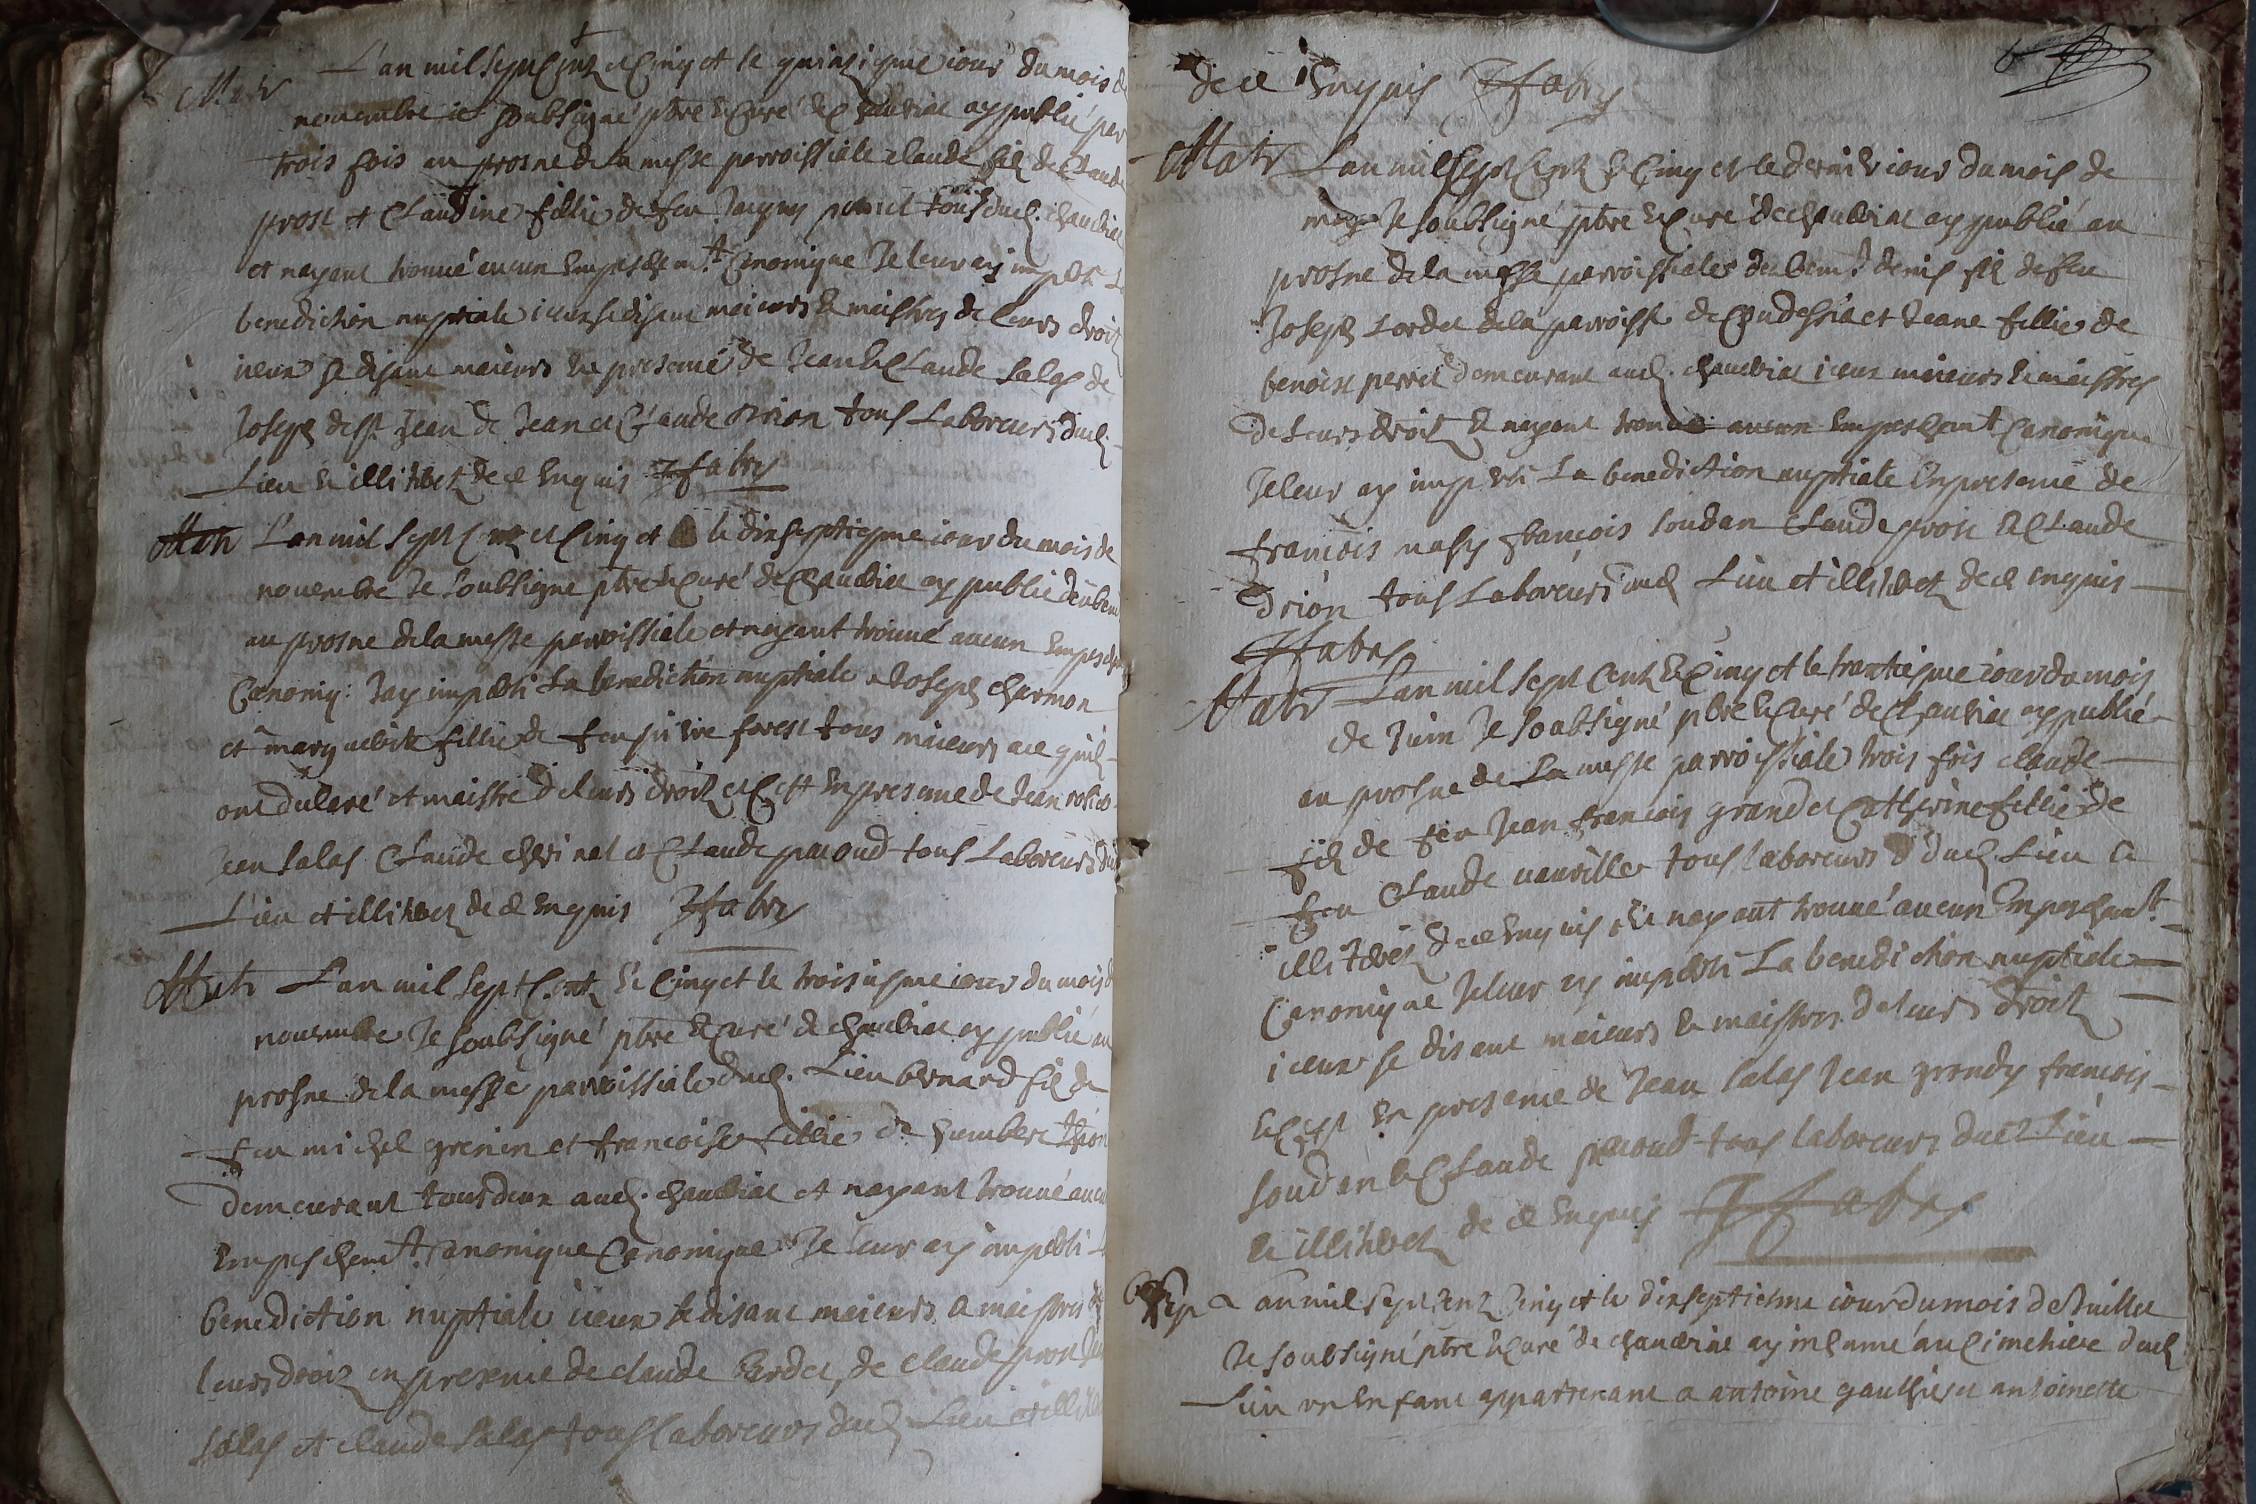 Matr L'an mil sept cent et cinq et le quinsiyme iour du mois d
novembre ie soubsigné pbre & curé de chauviat ay publié par
trois fois au prosne de la messe parroissiale claude filz de claude
prost et Claudine fillie de feu Jacques perret tous dud. chauviat
et nayant trouvé aucun Empeschemt. Canonique Je leur ay imparti La
benediction nuptiale iceux se disant maieurs & maistres de leurs droitz
iceux se disant maieurs En presence de Jean & Claude salas de
Joseph Jean de Jean et Claude drion tous Laboreurs dud.
Lieu & illitterez de ce Enquis Ffabry
Matr L'an mil sept Cent et Cinq et le dixseptiesme iour du mois de
novembre Je soubsigne pbre & curé de Chauviat ay publié deubem
au prosne de la messe parroissiale et nayant trouvé aucun Empesche
Canoniq: Jay imparti La benediction nuptiale a Joseph charmon
et marguerite fillie de feu forest tous maieurs a ce quilz
ont declaré et maistre de leurs droitz et C'est En presence de Jean
Jean salas Claude et Claude pacoud tous Laboreurs dud
Lieu et illiterez de ce Enquis Ffabry
Matr L'an mil sept Cent & Cinq et le troisiesme iour du mois d
novembre Je soubsigné pbre & curé de chauviat ay publié au
prosne de la messe parroissiale dud. Lieu bernard filz de
feu michel grenen et francoise fillie de humbert
demeurant tous deux aud. chauviat et nayant trouvé aucu
Empeschemt. Canonique Canonique Je leur ay imparti L
benediction nuptiale iceux se disant maieurs & maistres de
leurs droiz en presence de claude de claude
salas et claude salas tous laboreurs dud Lieu et illite
de ce Enquis Ffabry
Matr L'an mil sept Cent & Cinq et le dernier iour du mois de
may Je soubsigné pbre & curé de chauviat ay publié au
prosne de la messe parroissiales deubemt. denis filz de feu
Joseph Lordet de la parroisse de Condessia et Jeane fillie de
benoist perret demeurant aud. chauviat iceux maieurs & maistres
de Leurs droitz & nayant trouvé aucun Empeschemt Canonique
Je leur ay imparti La benediction nuptiale En presence de
francois nasy francois soudan Claude prost & Claude
drion tous Laboreurs dud Lieu et illiterez de ce enquis
Ffabry
Matr L'an mil sept Cent & Cinq et le trentiesme iour du mois
de Juin Je soubsigné pbre & curé de chauviat ay publié
au prosne de La messe parroissiale trois fois claude
filz de feu Jean francois grand et Catherine fillie de
feu Claude tous laboreurs dud. Lieu &
illiterez de ce Enquis & nayant trouvé aucun Empeschemt.
Canonique Je leur ay imparti La benediction nuptiale
iceux se disant maieurs & maistres de leurs droitz
& C'est En presence de Jean salas Jean grandy francois
soudan & Claude pacoud tous laboreurs dud. Lieu
& illiterez de ce Enquis Ffabry
Sep Lan mil sept cent Cinq et le dixseptiesme iour du mois de Juillet
Je soubsigné pbre & curé de chauviat ay inhumé au Cimetiere dud
Lieu un Enfant appartenant a antoine gauthier et antoinette